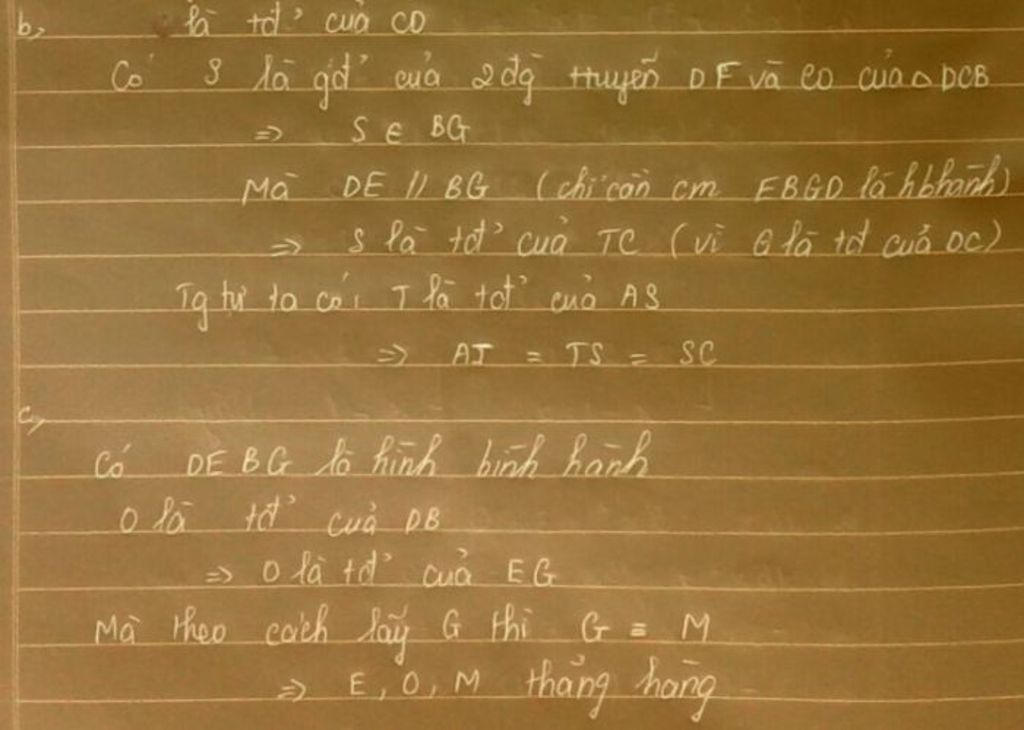 b, là tđ' của CD
Có S là gđ' của 2 đg truyến DF và CO của △ DCB
=> S ∈ BG
Mà DE // BG (chỉ cần cm EBGD là hbhành)
=> S là tđ' của TC (vì G là tđ của DC)
Tg tự ta có: T là tđ' của AS
=> AT = TS = SC
c,
Có DEBG là hình bình hành
O là tđ' của DB
=> O là tđ' của EG
Mà theo cách lấy G thì G ≡ M
=> E, O, M thẳng hàng